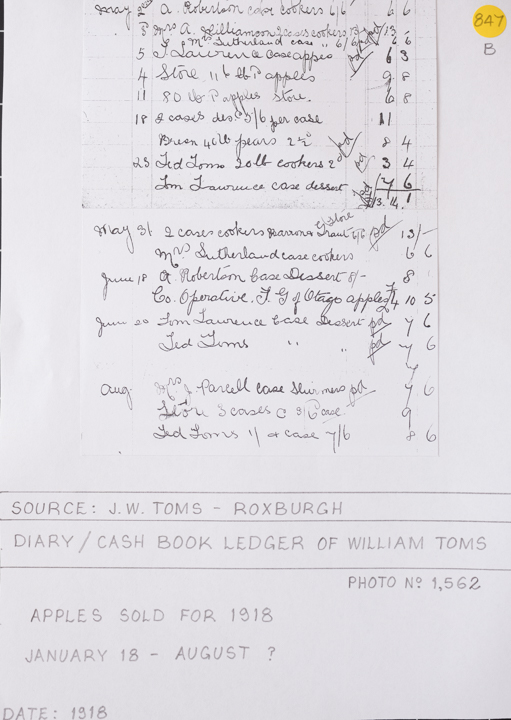 May 2nd A. Robertson case cookers 6/6 6 6
847
B
3 Mrs A. Williamson 2 cases cookers 13/- pd 13 -
" 6 Mrs Sutherland case " 6/6 pd 6 6
5 T Lawrence case apples pd 6 3
4 Store 116 lb apples 9 8
11 80 lb apples Store. 6 8
18 2 cases des. 5/6 per case 11
Breen 40 lb pears 2½ pd 8 4
25 Ted Toms 20 lb cookers 2d pd 3 4
Tom Lawrence case dessert pd 7 6
13. 14. 1
May 31 2 cases cookers 6/6 pd 13/-
Store
Mrs Sutherland case cookers 6 6
June 18 A. Robertson Case Dessert 8/- 8
Co. Operative. F. G of Otago apples 24 10 5
June 20 Tom Lawrence Case Dessert pd 7 6
Ted Toms " " pd 7 6
7
Aug Mrs J Parcell case pd 7 6
Store 3 cases @ 3/ case. 9
Ted Toms 1/2 case 7/6 8 6
SOURCE: J.W. TOMS - ROXBURGH
DIARY / CASH BOOK LEDGER OF WILLIAM TOMS
PHOTO Nº 1,562
APPLES SOLD FOR 1918
JANUARY 18 - AUGUST ?
DATE: 1918